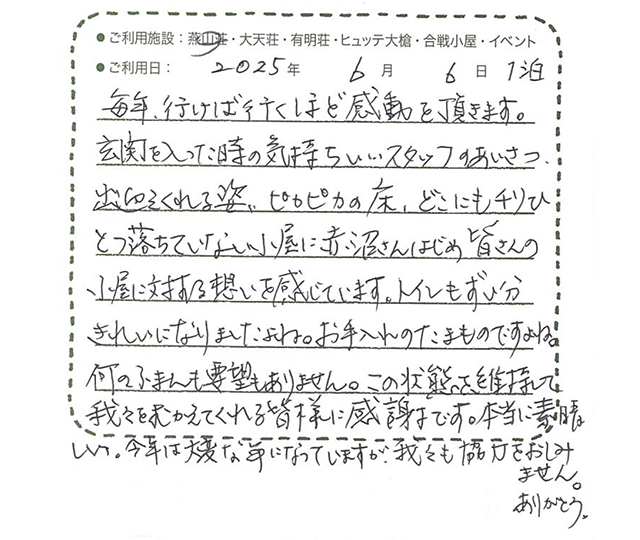 ●ご利用施設：燕山荘・大天荘・有明荘・ヒュッテ大槍・合戦小屋・イベント
●ご利用日： 2025年 6月 6日 1泊
毎年、行けば行くほど感動を頂きます。
玄関を入った時の気持ちいいスタッフのあいさつ、
出迎えてくれる姿、ピカピカの床、どこにもチリひ
とつ落ちていない小屋に赤沼さんはじめ皆さんの
小屋に対する想いを感じています。トイレもずい分
きれいになりましたよね。お手入れのたまものですよね。
何のふまんも要望もありません。この状態を維持して
我々をむかえてくれる皆様に感謝です。本当に素晴
しい。今年は大変な年になっていますが、我々も協力をおしみ
ません。
ありがとう。